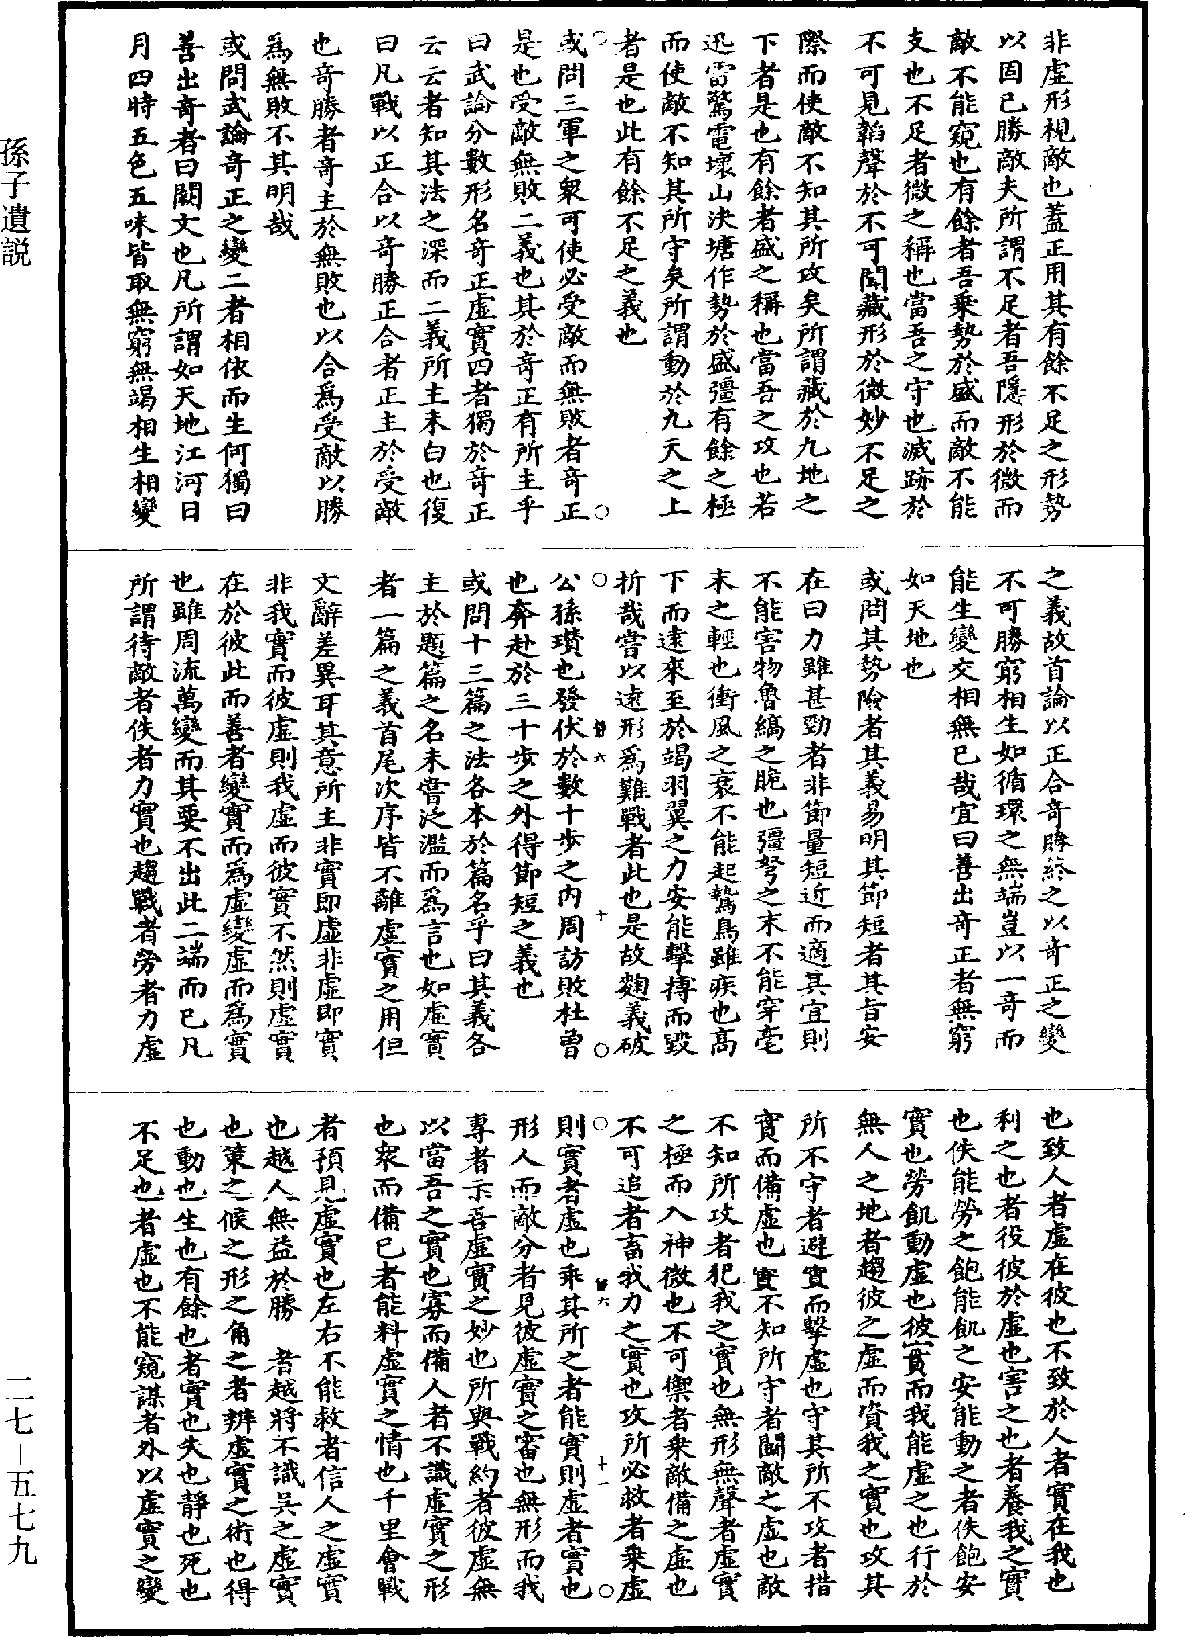 非虛形視敵也蓋正用其有餘不足之形勢
以因已勝敵夫所謂不足者吾隱形於微而
敵不能窺也有餘者吾乘勢於盛而敵不能
支也不足者微之稱也當吾之守也滅跡於
不可見韜聲於不可聞藏形於微妙不足之
際而使敵不知其所攻矣所謂藏於九地之
下者是也有餘者盛之稱也當吾之攻也若
迅雷驚電壞山決塘作勢於盛彊有餘之極
而使敵不知其所守矣所謂動於九天之上
者是也此有餘不足之義也
或問三軍之衆可使必受敵而無敗者奇正
是也受敵無敗二義也其於奇正有所主乎
曰武論分數形名奇正虛實四者獨於奇正
云云者知其法之深而二義所主未白也復
曰凡戰以正合以奇勝正合者正主於受敵
也奇勝者奇主於無敗也以合爲受敵以勝
爲無敗不其明哉
或問武論奇正之變二者相依而生何獨曰
善出奇者曰闕文也凡所謂如天地江河日
月四時五色五味皆取無窮無竭相生相變
之義故首論以正合奇勝終之以奇正之變
不可勝窮相生如循環之無端豈以一奇而
能生變交相無已哉宜曰善出奇正者無窮
如天地也
或問其勢險者其義易明其節短者其旨安
在曰力雖甚勁者非節量短近而適其宜則
不能害物魯縞之脆也彊弩之末不能穿毫
末之輕也衝風之衰不能起鷙鳥雖疾也高
下而遠來至於竭羽翼之力安能擊搏而毀
折哉嘗以遠形爲難戰者此也是故麴義破
公孫瓚也發伏於數十步之內周訪敗杜曾
也奔赴於三十步之外得節短之義也
或問十三篇之法各本於篇名乎曰其義各
主於題篇之名未嘗泛濫而爲言也如虛實
者一篇之義首尾次序皆不離虛實之用但
文辭差異耳其意所主非實即虛非虛即實
非我實而彼虛則我虛而彼實不然則虛實
在於彼此而善者變實而爲虛變虛而爲實
也雖周流萬變而其要不出此二端而已凡
所謂待敵者佚者力實也趨戰者勞者力虛
也致人者虛在彼也不致於人者實在我也
利之也者役彼於虛也害之也者養我之實
也佚能勞之飽能飢之安能動之者佚飽安
實也勞飢動虛也彼實而我能虛之也行於
無人之地者趨彼之虛而資我之實也攻其
所不守者避實而擊虛也守其所不攻者措
實而備虛也敵不知所守者鬭敵之虛也敵
不知所攻者犯我之實也無形無聲者虛實
之極而入神微也不可禦者乘敵備之虛也
不可追者畜我力之實也攻所必救者乘虛
則實者虛也乖其所之者能實則虛者實也
形人而敵分者見彼虛實之審也無形而我
專者示吾虛實之妙也所與戰約者彼虛無
以當吾之實也寡而備人者不識虛實之形
也衆而備已者能料虛實之情也千里會戰
者預見虛實也左右不能救者信人之虛實
也越人無益於勝　者越將不識吳之虛實
也策之候之形之角之者辨虛實之術也得
也動也生也有餘也者實也失也靜也死也
不足也者虛也不能窺謀者外以虛實之變
孫子遺説
二七—五七九